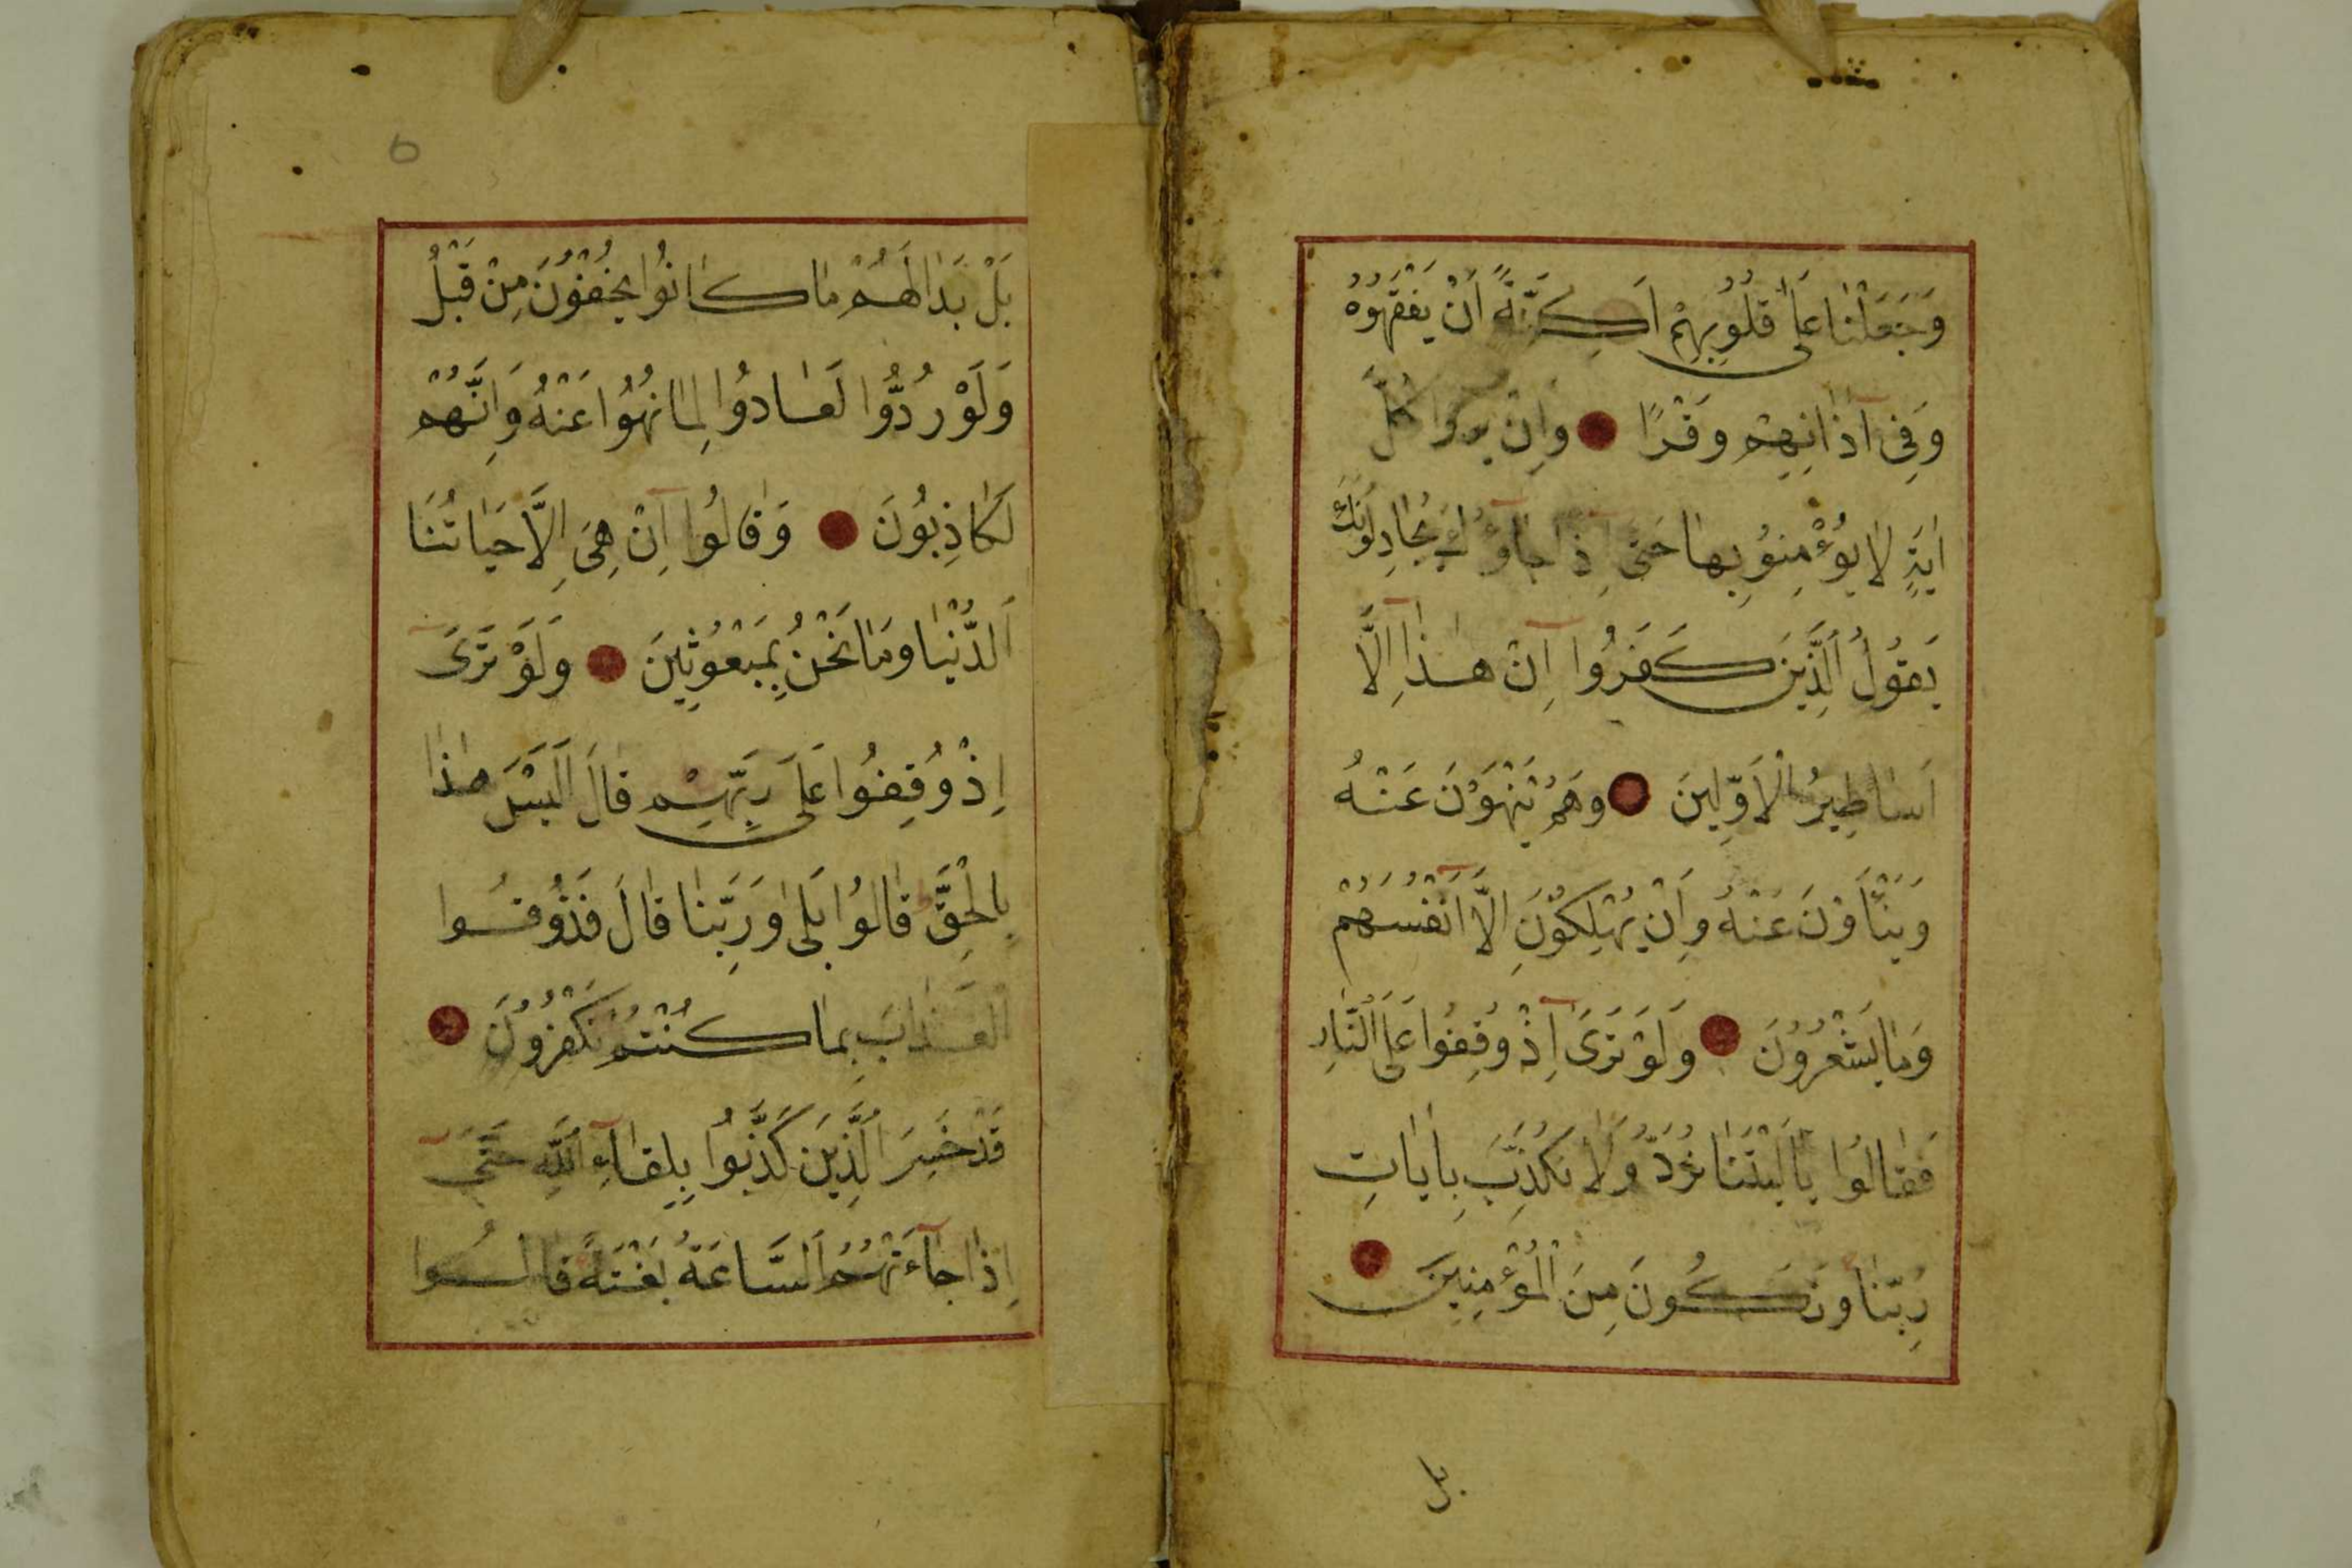 وَجَعَلْنَا عَلَى قُلُوبِهِمْ اَكِنَّةً اَنْ يَفْقَهُوهُ
وَفِى آذَانِهِمْ وَقْرًا وَاِنْ يروا كُلَّ
اٰيَةٍ لَا يُؤْمِنُو بِهَا حَتَّى اِذَا جَاؤُ يُجَادِلُونَكَ
يَقُولُ الَّذِينَ كَفَرُوا اِنْ هٰذَا اِلَّا
اَسَاطِيرُ الْاَوَّلِينَ وَهُمْ يَنْهَوْنَ عَنْهُ
وَيَنْأَوْنَ عَنْهُ وَاِنْ يُهْلِكُونَ اِلَّا اَنْفُسَهُمْ
وَمَا يَشْعُرُونَ وَلَوْ تَرَىَ اِذْ وُقِفُوا عَلَى النَّارِ
فَقَالُوا يَا لَيْتَنَا نُرَدُّ وَلَا نُكَذِّبَ بِاٰيَاتِ
رَبِّنَا وَنَكُونَ مِنَ الْمُؤْمِنِينَ
بل
6
بَلْ بَدَا لَهُمْ مَا كَانُوا يُخْفُونَ مِنْ قَبْلُ
وَلَوْ رُدُّوا لَعَادُوا لِمَا نُهُوا عَنْهُ وَاِنَّهُمْ
لَكَاذِبُونَ وَقَالُوا اِنْ هِىَ اِلَّا حَيَاتُنَا
الدُّنْيَا وَمَا نَحْنُ بِمَبْعُوثِينَ وَلَوْ تَرَىَ
اِذْ وُقِفُوا عَلَى رَبِّهِمْ قَالَ اَلَيْسَ هٰذَا
بِالْحَقِّ قَالُوا بَلَى وَرَبِّنَا قَالَ فَذُوقُوا
الْعَذَابَ بِمَا كُنْتُمْ تَكْفُرُونَ
قَدْ خَسِرَ الَّذِينَ كَذَّبُوا بِلِقَاءِ اللَّهِ حَتَّى
اِذَا جَآءَتْهُمُ السَّاعَةُ بَغْتَةً قَالُوا